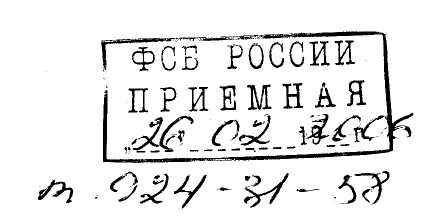 ФСБ РОССИИ
ПРИЕМНАЯ
„26" 02 2006
т. 924-31-58